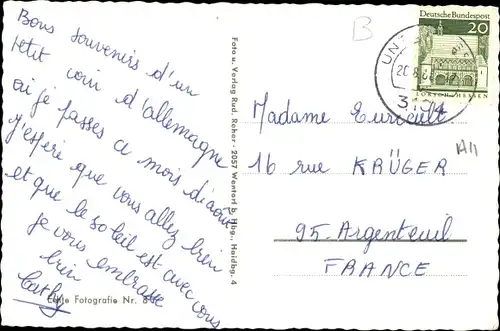 Bons souvenirs d'un
petit coin d'allemagne
où je passes ce mois d'août
J'espère que vous allez bien
et que le soleil est avec vous
je vous embrasse
bien
Cathy
Echte Fotografie Nr.
Foto u. Verlag Rud. Reher · 2057 Wentorf b. Hbg., Haidbg. 4
B
Deutsche Bundespost
20
LORSCH/HESSEN
Madame
16 rue KRÜGER
95. Argenteuil
FRANCE